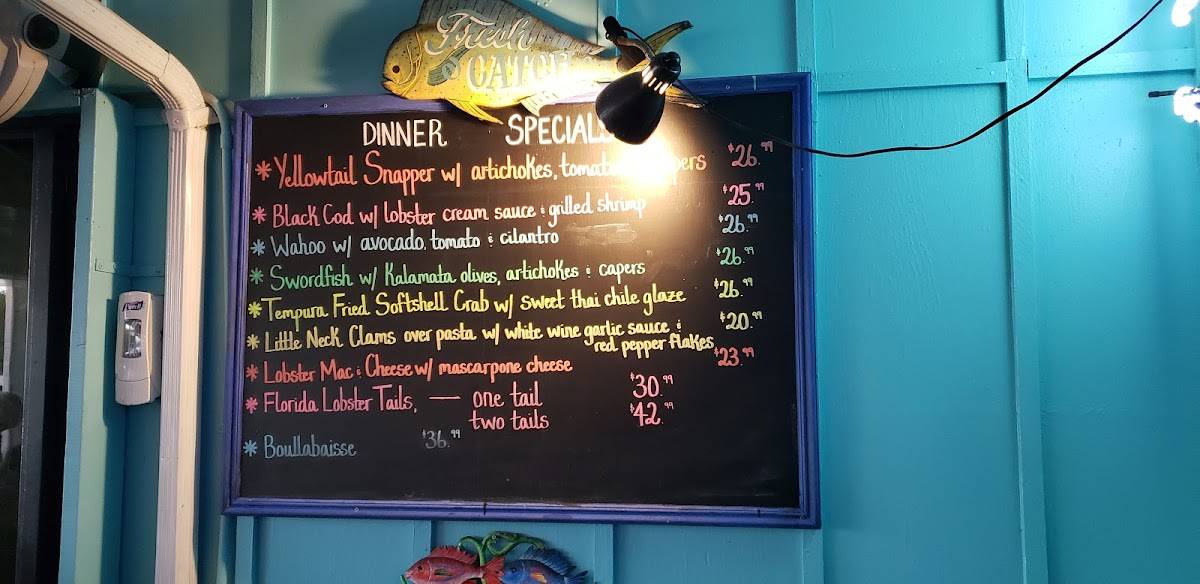 Fresh
CATCH
DINNER SPECIALS
* Yellowtail Snapper w/ artichokes, $26.99
* Black Cod w/ lobster cream sauce & grilled shrimp $25.99
* Wahoo w/ avocado, tomato & cilantro $26.99
* Swordfish w/ Kalamata olives, artichokes & capers $26.99
* Tempura Fried Softshell Crab w/ sweet thai chile glaze $26.99
* Little Neck Clams over pasta w/ white wine garlic sauce & $20.99
red pepper flakes
* Lobster Mac & Cheese w/ mascarpone cheese $23.99
* Florida Lobster Tails, — one tail $30.99
two tails $42.99
* Boullabaisse $36.99